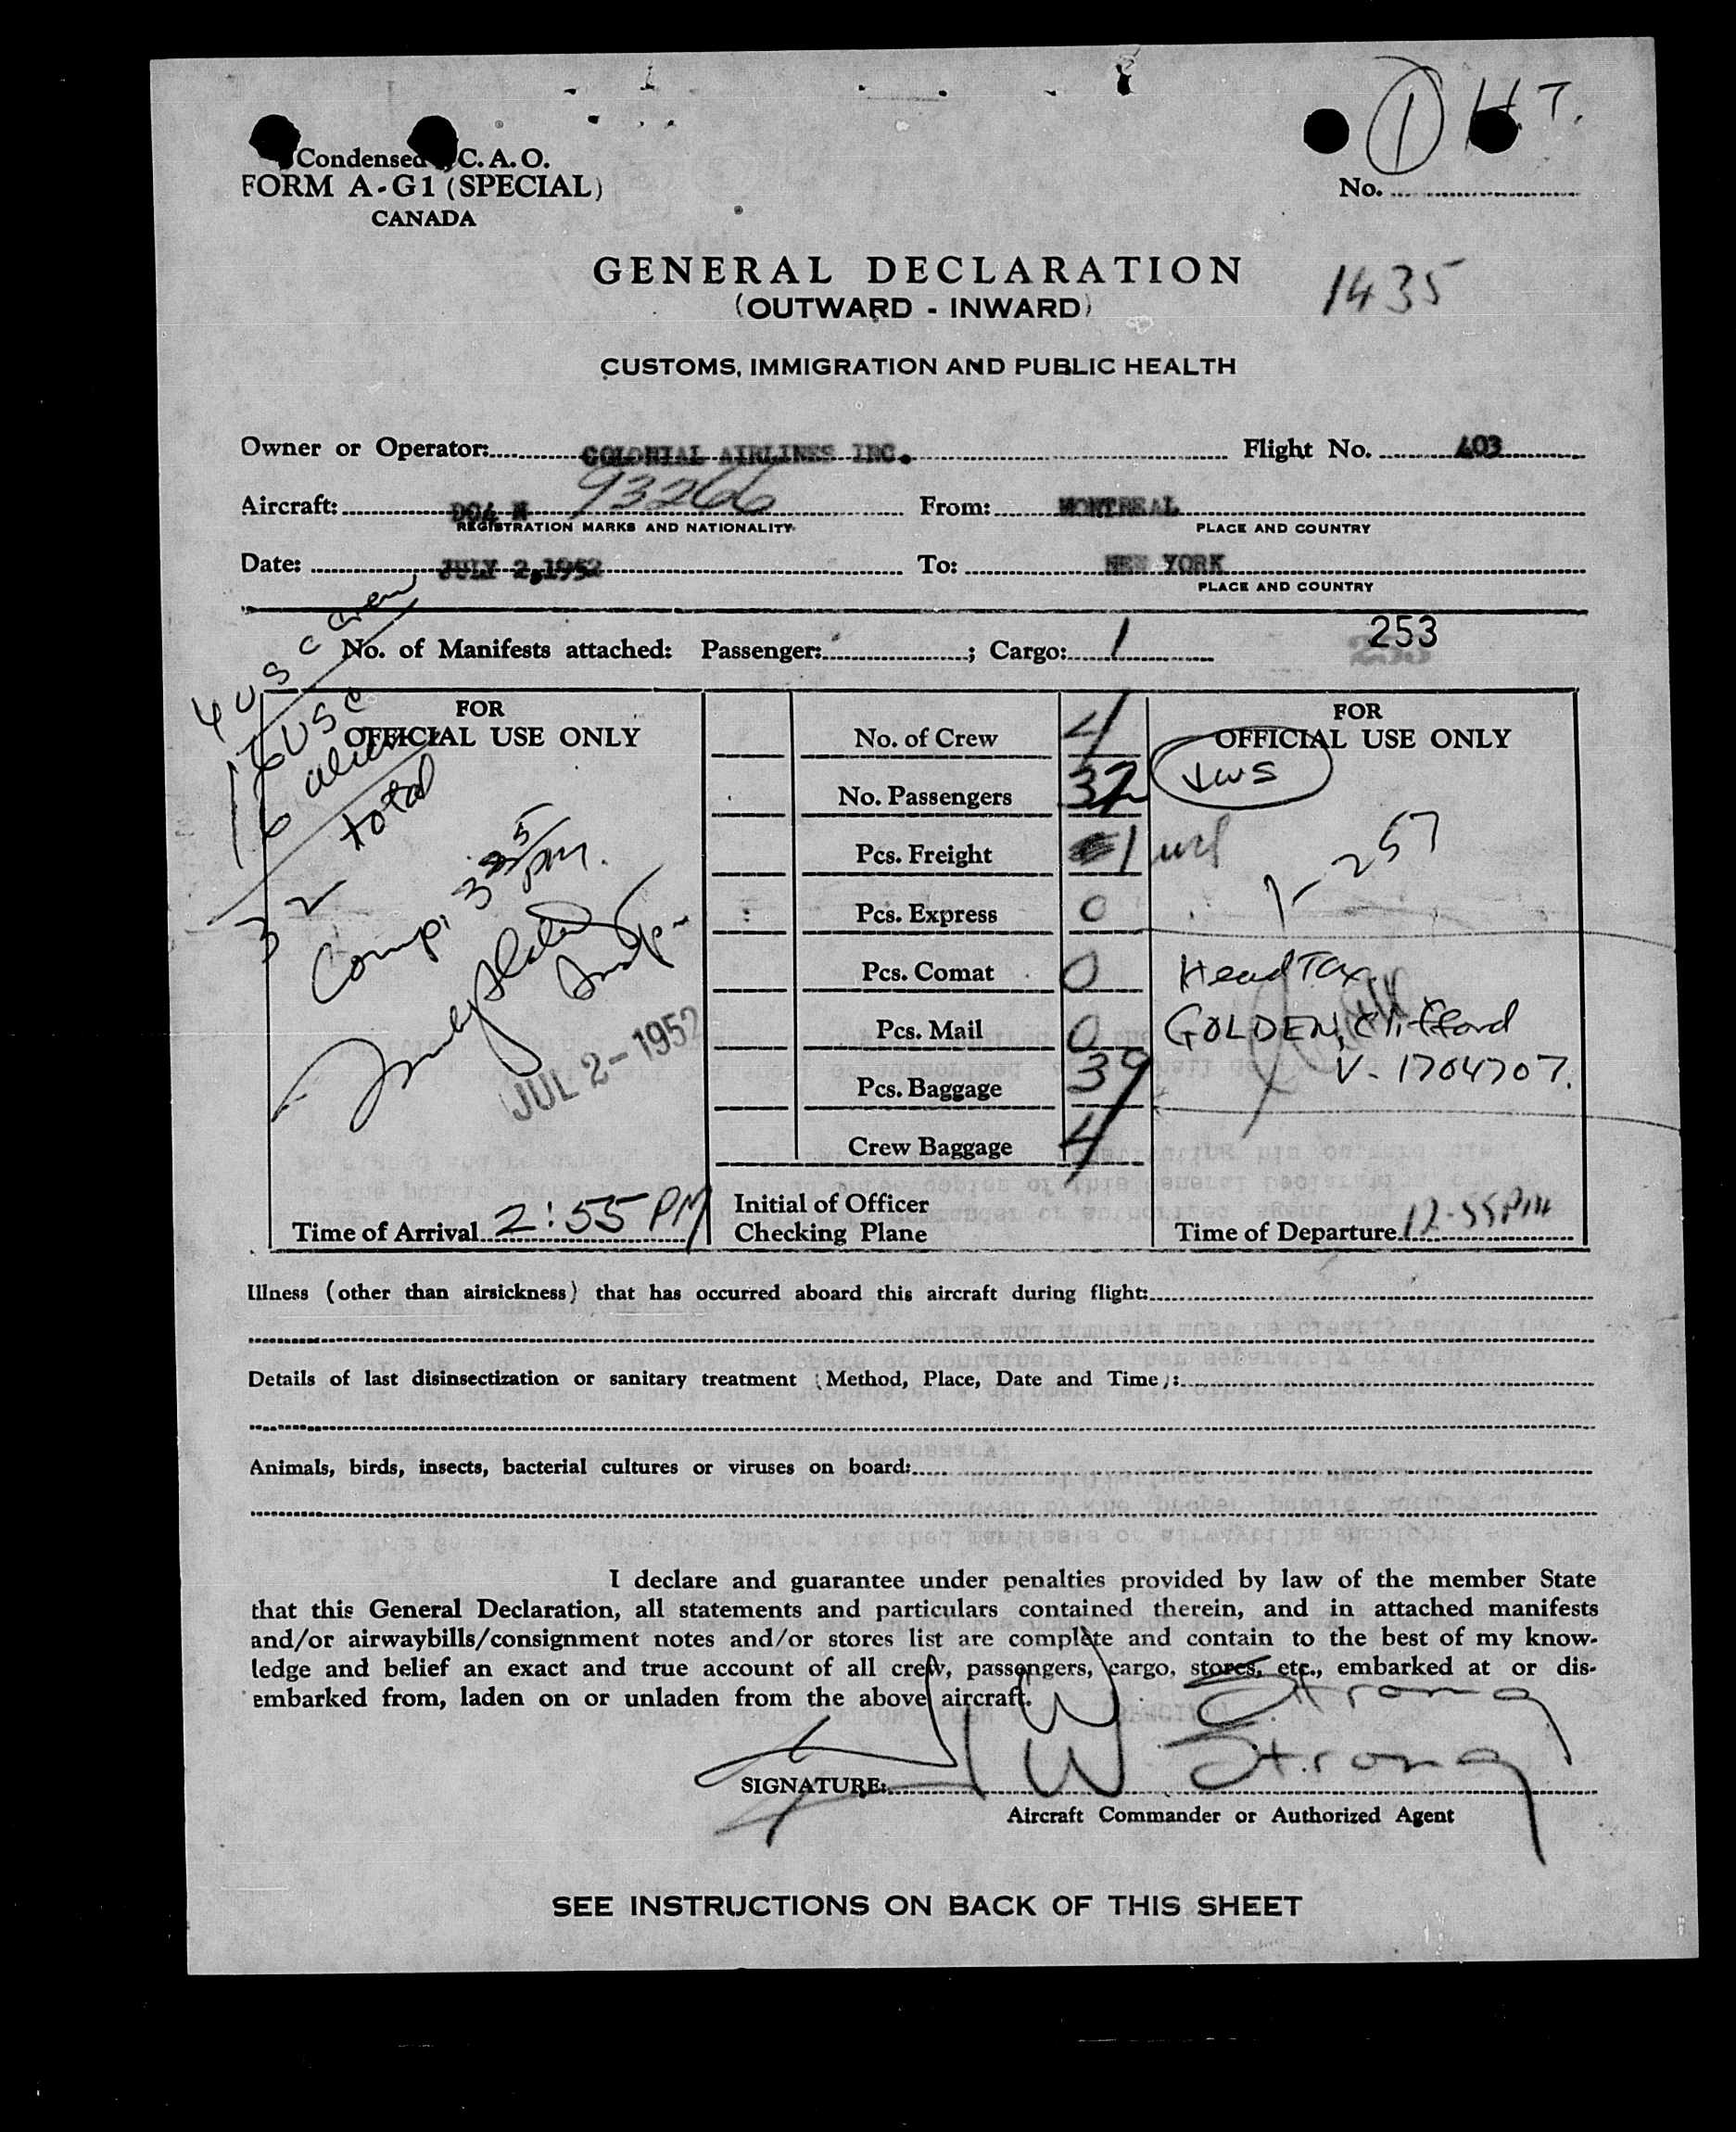 1 H.T.
Condensed C.A.O.
FORM A-G1 (SPECIAL)
CANADA
No.
GENERAL DECLARATION
1435
(OUTWARD - INWARD)
CUSTOMS, IMMIGRATION AND PUBLIC HEALTH
Owner or Operator: COLONIAL AIRLINES INC. Flight No. 403
Aircraft: DC4 N 93266 From: MONTREAL
REGISTRATION MARKS AND NATIONALITY PLACE AND COUNTRY
Date: JULY 2,1952 To: NEW YORK
PLACE AND COUNTRY
253
No. of Manifests attached: Passenger: ; Cargo: 1
4 USC Crew
16 USC
16 aliens
32 total
FOR
OFFICIAL USE ONLY
Comp. 3 25 PM.
Insp.
JUL 2 - 1952
Time of Arrival 2:55 PM
No. of Crew 4
No. Passengers 32
Pcs. Freight 1
Pcs. Express 0
Pcs. Comat 0
Pcs. Mail 0
Pcs. Baggage 39
Crew Baggage 4
Initial of Officer
Checking Plane
FOR
OFFICIAL USE ONLY
JWS
1-257
Head Tax
GOLDEN, Clifford
V-1704707.
Time of Departure 12-55 PM
Illness (other than airsickness) that has occurred aboard this aircraft during flight:
Details of last disinsectization or sanitary treatment (Method, Place, Date and Time):
Animals, birds, insects, bacterial cultures or viruses on board:
I declare and guarantee under penalties provided by law of the member State
that this General Declaration, all statements and particulars contained therein, and in attached manifests
and/or airwaybills/consignment notes and/or stores list are complete and contain to the best of my know-
ledge and belief an exact and true account of all crew, passengers, cargo, stores, etc., embarked at or dis-
embarked from, laden on or unladen from the above aircraft.
J W Strong
SIGNATURE: J W Strong
Aircraft Commander or Authorized Agent
SEE INSTRUCTIONS ON BACK OF THIS SHEET